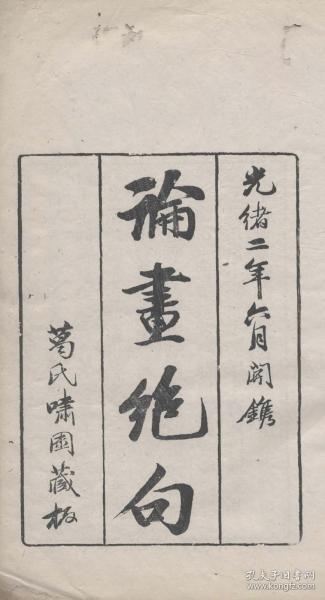 光緒二年六月開鐫
論畫絕句
葛氏嘯園藏板
孔夫子旧书网